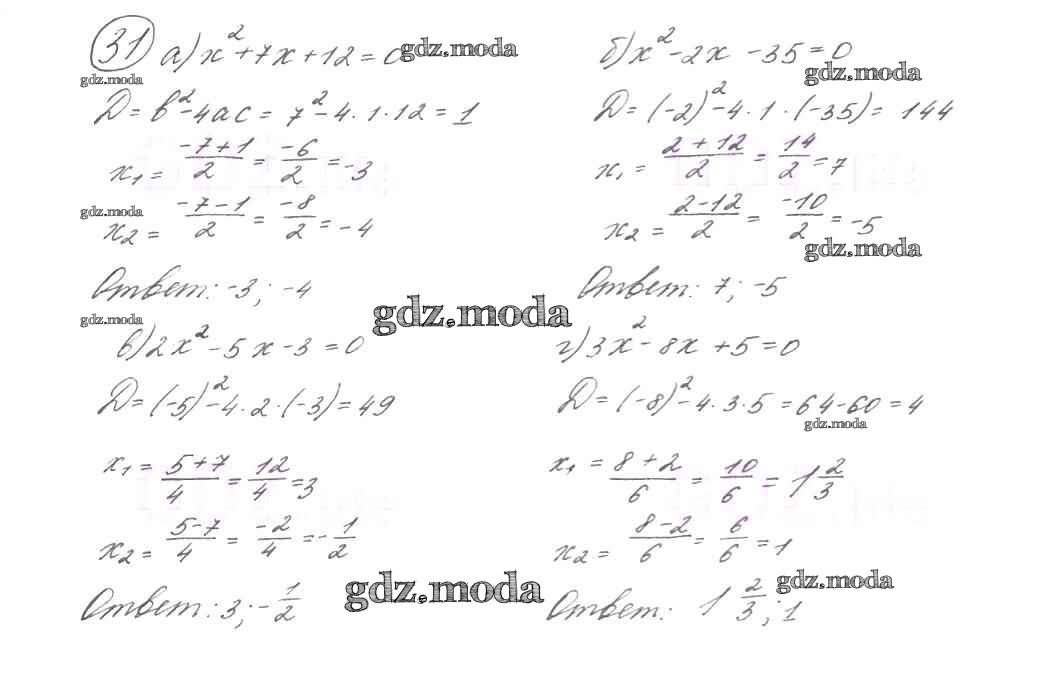 31 а) x² + 7x + 12 = 0 gdz.moda
gdz.moda
D = b² - 4ac = 7² - 4·1·12 = 1
x₁ = (-7+1)/2 = -6/2 = -3
gdz.moda
x₂ = (-7-1)/2 = -8/2 = -4
Ответ: -3; -4
gdz.moda
б) x² - 2x - 35 = 0
gdz.moda
D = (-2)² - 4·1·(-35) = 144
x₁ = (2+12)/2 = 14/2 = 7
x₂ = (2-12)/2 = -10/2 = -5
gdz.moda
Ответ: 7; -5
gdz.moda
в) 2x² - 5x - 3 = 0
D = (-5)² - 4·2·(-3) = 49
x₁ = (5+7)/4 = 12/4 = 3
x₂ = (5-7)/4 = -2/4 = -1/2
Ответ: 3; -1/2
gdz.moda
г) 3x² - 8x + 5 = 0
D = (-8)² - 4·3·5 = 64-60 = 4
gdz.moda
x₁ = (8+2)/6 = 10/6 = 1 2/3
x₂ = (8-2)/6 = 6/6 = 1
gdz.moda
Ответ: 1 2/3; 1